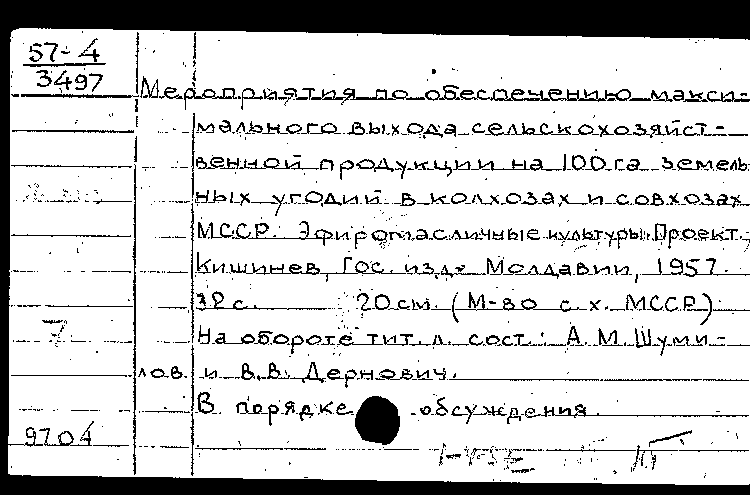 57-4
3497
Мероприятия по обеспечению макси-
мального выхода сельскохозяйст-
венной продукции на 100 га земель
ных угодий в колхозах и совхозах
МССР. Эфиромасличные культуры. Проект.
Кишинев, Гос. изд-во Молдавии, 1957.
32 с. 20 см. (М-во с. х. МССР)
7
На обороте тит. л. сост.: А. М. Шуми-
лов и В. В. Дернович.
В порядке обсуждения.
9704